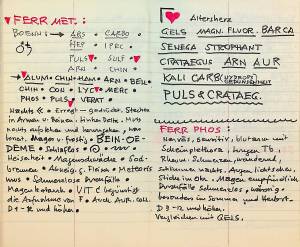 FERR MET. :
BOENH → ARS CARBO
HEP IPEC
PULS SULF
ARN CHIN
ALUM · CHIN · HAM · ARN · BELL
CHIN · CON · LYC · MERC ·
PHOS · PULS VERAT
Nachts & Erregt - gedrückt, Stechen
in Armen u. Beinen. Muss
nachts aufstehen und herumgehen,
Magen u. frostig BEIN-OE-
DEME · Schlaflos
Heiserkeit · Magenschwäche · Sod-
brennen · Abneig. g. Fleisch · Meteoris
mus · Schmerzlose Durchfälle
VIT C begünstigt
die Aufnahme von F.
D1 - R und höher.
Altersherz
GELS MAGN. FLUOR. BARCA
SENEGA STROPHANT
CRATAEGUS ARN AUR
KALI CARB (HYDROPS GEDUNSENHEIT)
PULS & CRATAEG.
FERR PHOS :
Nervös, sensitiv, blutarm mit
Scheinplethora, Lungen Tb,
Rheum. Schmerzen, wandernd,
Schlimmer nachts, Augen lichtscheu,
Stiche im Ohr. Magen empfindlich
Durchfälle schmerzlos, wässrig,
besonders im Sommer und Herbst.
D3 - R und höher.
Vergleichen mit GELS.